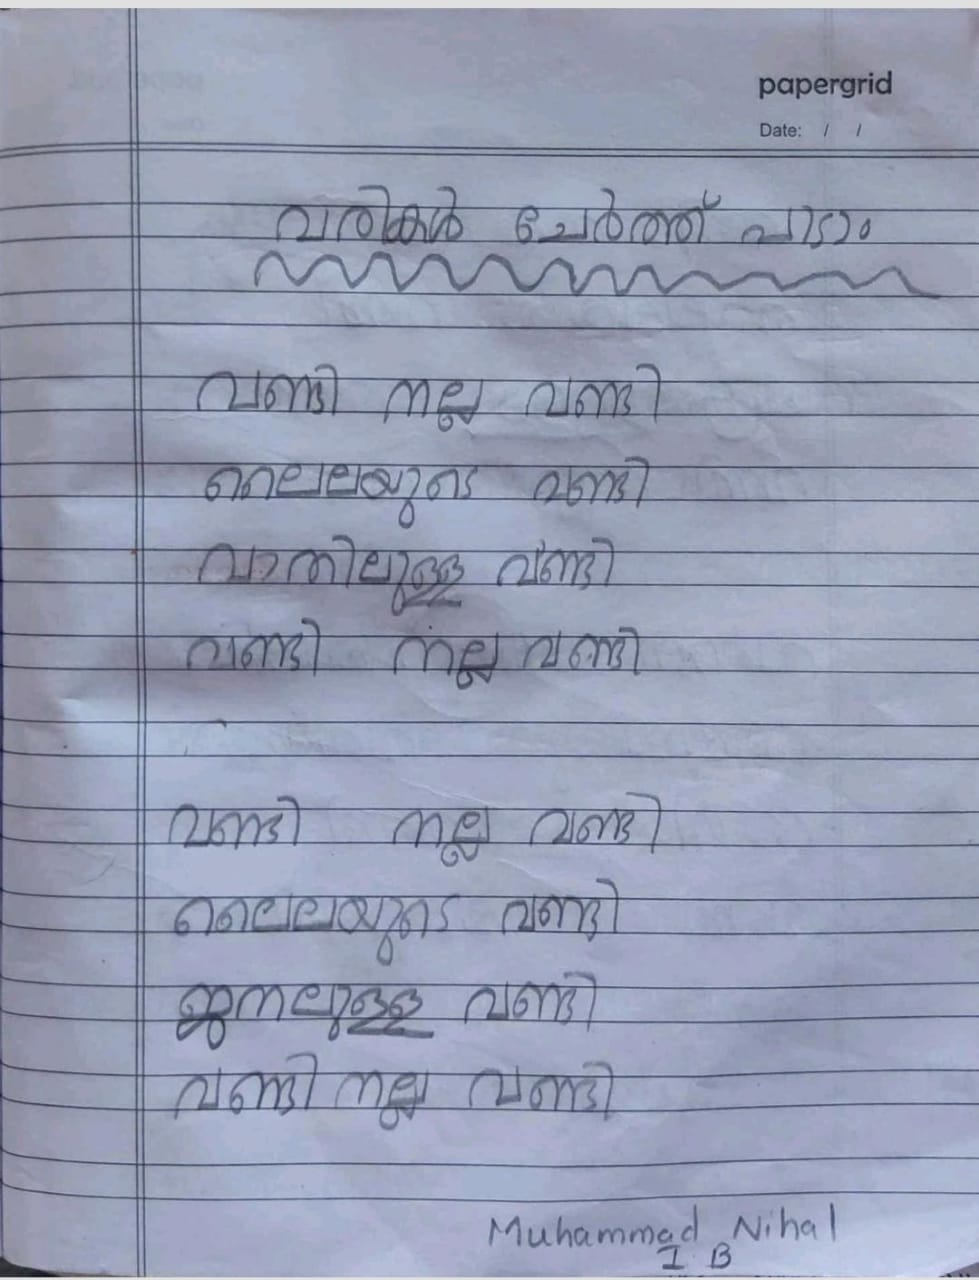 papergrid
Date: / /
വരികൾ ചേർത്ത് പാടാം
വണ്ടി നല്ല വണ്ടി
ലൈലയുടെ വണ്ടി
വാതിലുള്ള വണ്ടി
വണ്ടി നല്ല വണ്ടി
വണ്ടി നല്ല വണ്ടി
ലൈലയുടെ വണ്ടി
ജനലുള്ള വണ്ടി
വണ്ടി നല്ല വണ്ടി
Muhammad Nihal
I B